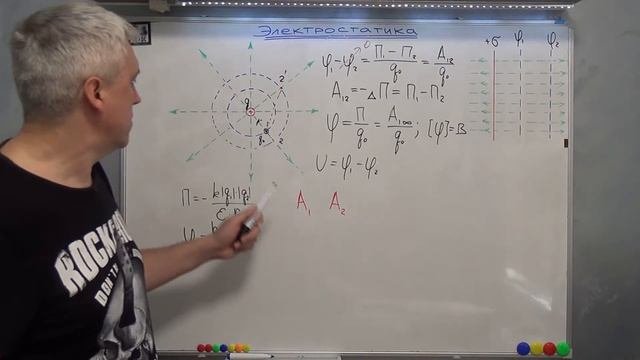 Электростатика
φ₁-φ₂⁰ = (П₁ - П₂)/q₀ = A₁₂/q₀
A₁₂ = -ΔП = П₁ - П₂
φ = П/q₀ = A₁∞/q₀ ; [φ]=В
U = φ₁ - φ₂
+σ φ₁ φ₂
2'
q
1
q₀ 2
П = - k|q₁|·|q₂|
A₁ A₂
ROCK
DON'T